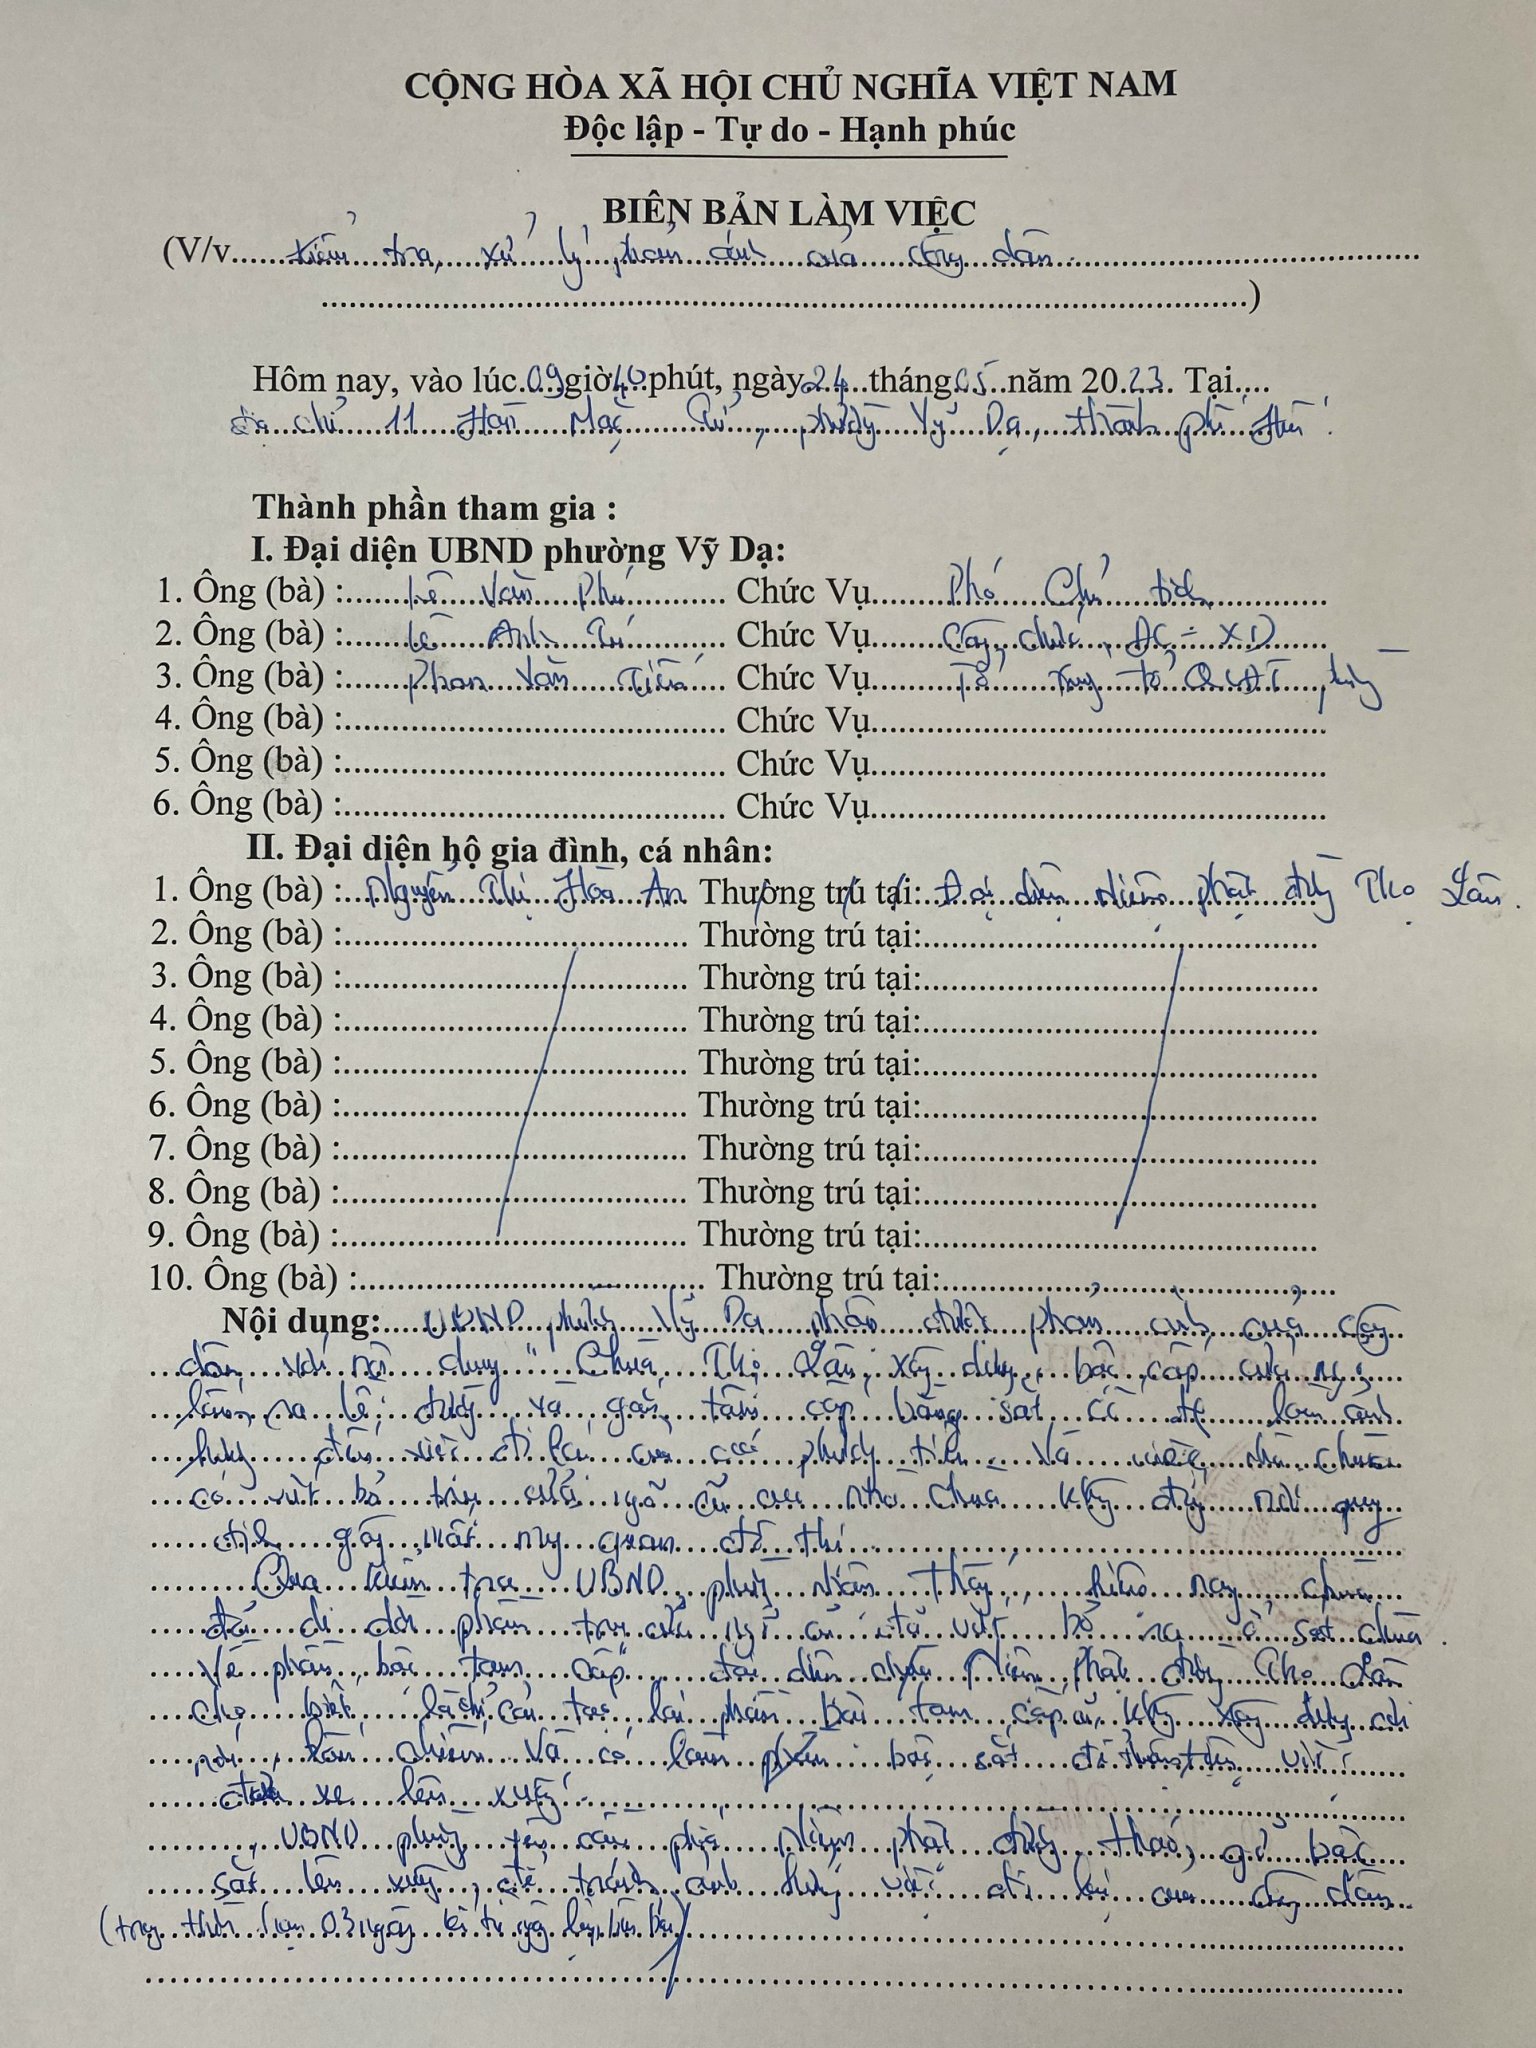 CỘNG HÒA XÃ HỘI CHỦ NGHĨA VIỆT NAM
Độc lập - Tự do - Hạnh phúc
BIÊN BẢN LÀM VIỆC
(V/v......kiểm tra, xử lý phản ánh của công dân..............................
..............................)
Hôm nay, vào lúc 09 giờ 40 phút, ngày 24 tháng 05 năm 2023. Tại....
địa chỉ 11 Hàn Mặc Tử, phường Vỹ Dạ, thành phố Huế.
Thành phần tham gia :
I. Đại diện UBND phường Vỹ Dạ:
1. Ông (bà) :......Lê Văn Phú...... Chức Vụ......Phó Chủ tịch......
2. Ông (bà) :......Lê Anh Tú...... Chức Vụ......Công chức ĐC - XD......
3. Ông (bà) :......Phan Văn...... Chức Vụ......Tổ tổ QLĐT
4. Ông (bà) :.............................. Chức Vụ..............................
5. Ông (bà) :.............................. Chức Vụ..............................
6. Ông (bà) :.............................. Chức Vụ..............................
II. Đại diện hộ gia đình, cá nhân:
1. Ông (bà) :...Nguyễn Thị Hòa An Thường trú tại: Đại diện Niệm phật đường Thọ Lân.
2. Ông (bà) :.............................. Thường trú tại:..............................
3. Ông (bà) :.............................. Thường trú tại:..............................
4. Ông (bà) :.............................. Thường trú tại:..............................
5. Ông (bà) :.............................. Thường trú tại:..............................
6. Ông (bà) :.............................. Thường trú tại:..............................
7. Ông (bà) :.............................. Thường trú tại:..............................
8. Ông (bà) :.............................. Thường trú tại:..............................
9. Ông (bà) :.............................. Thường trú tại:..............................
10. Ông (bà) :.............................. Thường trú tại:..............................
Nội dung:......UBND phường Vỹ Dạ nhận được phản ánh của công
dân với nội dung "Chùa Thọ Lân xây dựng bậc cấp
ra lề đường và gắn tấm cấp bằng sắt có thể làm ảnh
hưởng đến việc đi lại của các phương tiện. Và nhà chùa
có vứt bỏ trụ cũ của nhà chùa không đúng nơi quy
định gây mất mỹ quan đô thị
Qua kiểm tra UBND phường nhận thấy, hiện nay chùa
đã di dời phần trụ cũ đã vứt bỏ ra sát chùa.
Về phần bậc tam cấp, đại diện Niệm phật đường Thọ Lân
cho biết là chỉ cải tạo lại phần bậc tam cấp cũ, không xây dựng cơi
nới, lấn chiếm. Và có làm bậc sắt để thuận tiện việc
xe lên xuống.
UBND phường yêu cầu phía Niệm phật đường tháo, gỡ bậc
sắt lên xuống, để tránh ảnh hưởng việc đi lại của công dân
(trong thời hạn 03 ngày kể từ ngày lập biên bản)